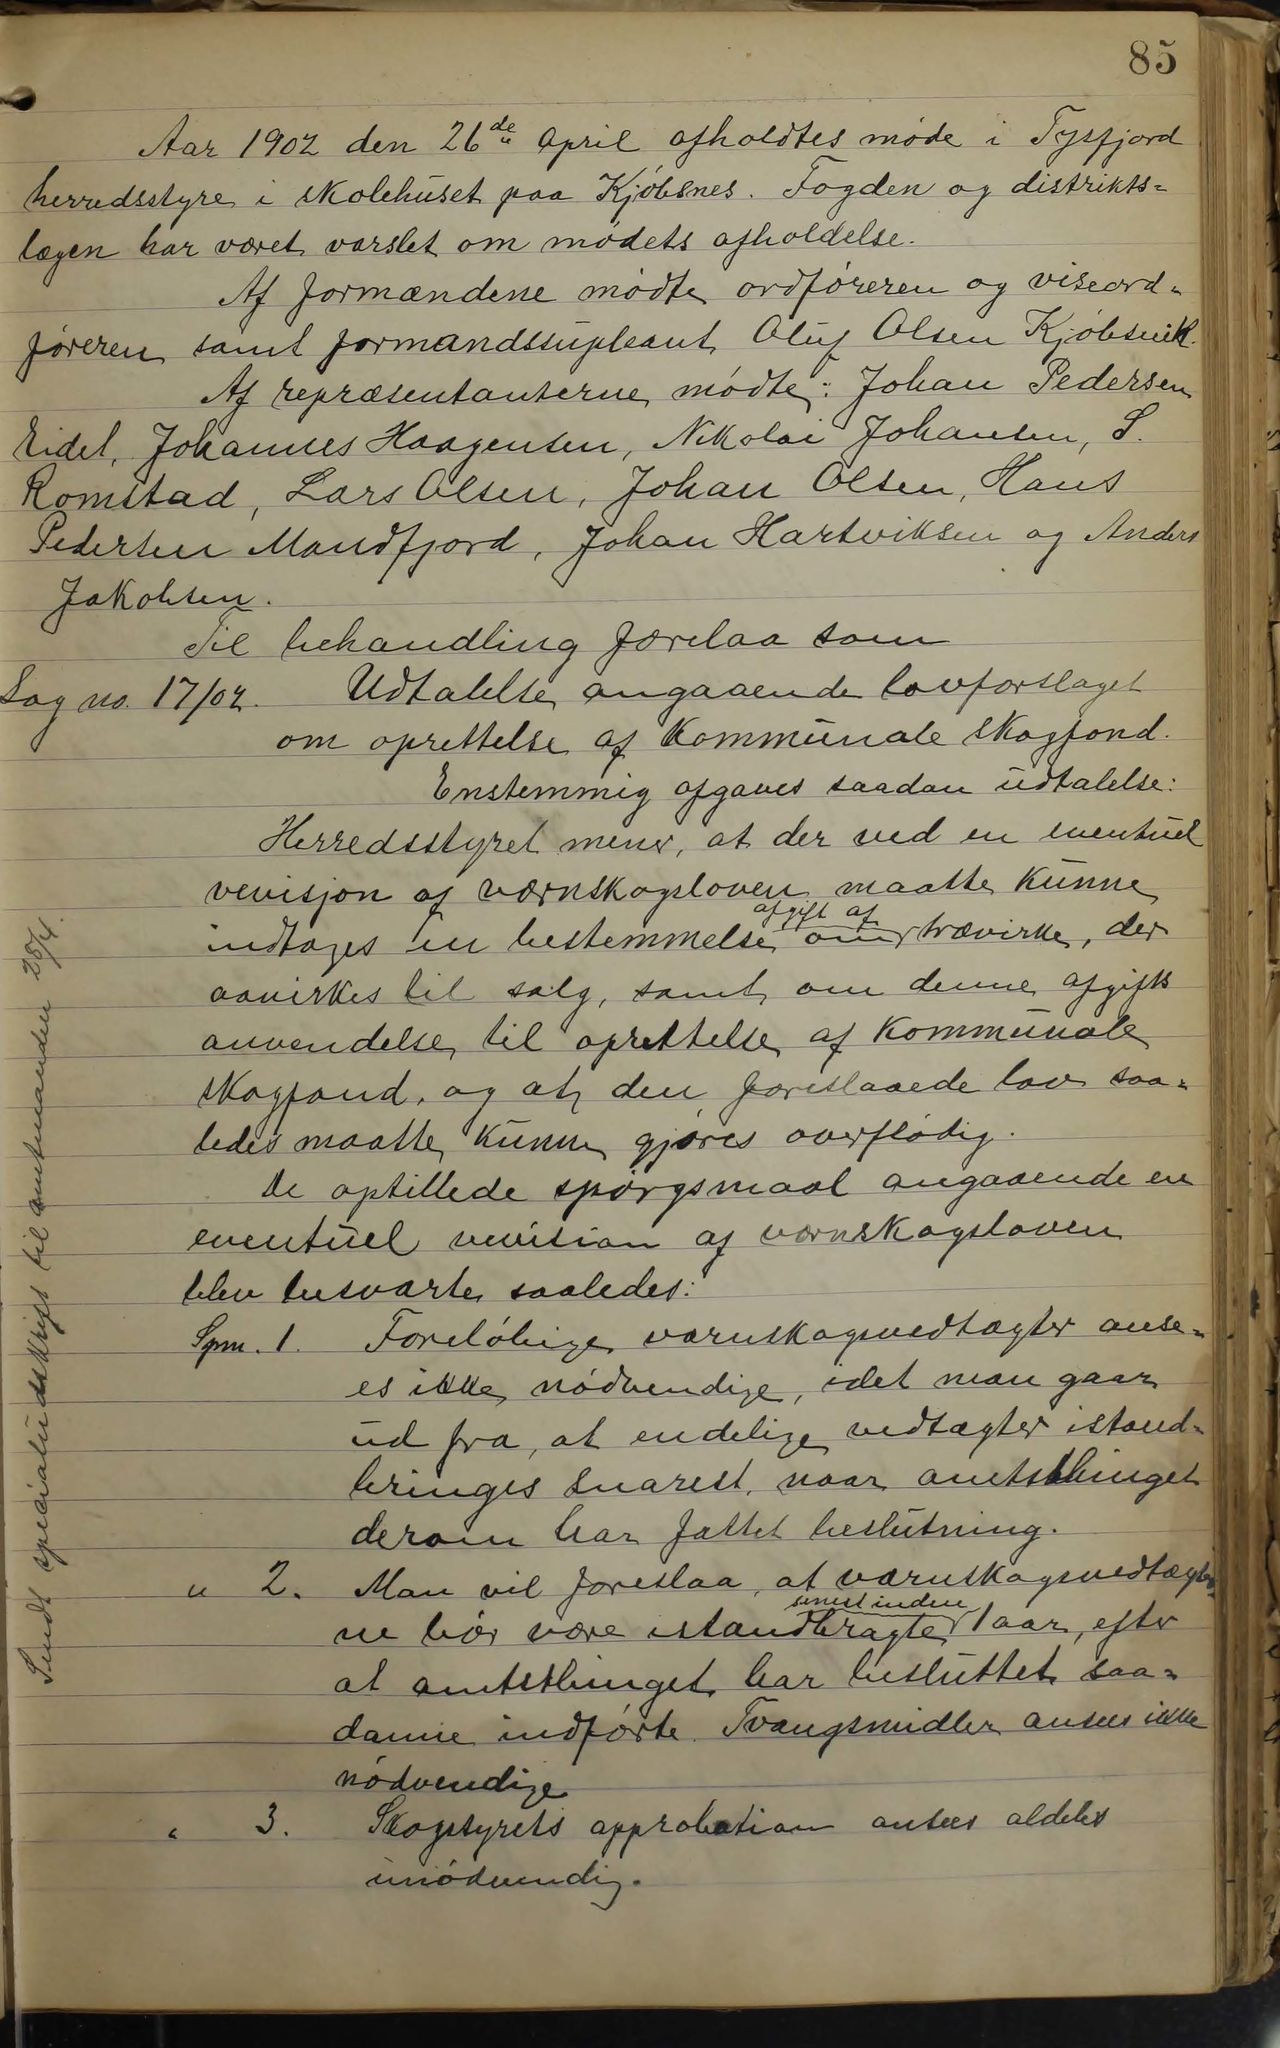 85
Aar 1902 den 26de april afholdtes møde i Tysfjord
herredsstyre i skolehuset paa Kjøbsnes. Fogden og distrikts-
lægen har været varslet om mødets afholdelse.
Af formændene mødte ordføreren og viseord-
føreren samt formandssupleant Oluf Olsen Kjøbsvik.
Af repræsentanterne mødte: Johan Pedersen
Eidet, Johannes Haagensen, Nikolai Johansen, S.
Romstad, Lars Olsen, Johan Olsen, Hans
Pedersen Mandfjord, Johan Hartviksen og Anders
Jakobsen.
Til behandling forelaa som
Sag no. 17/02. Udtalelse angaaende lovforslaget
om oprettelse af kommunale skogfond.
Enstemmig afgaves saadan udtalelse:
Herredsstyret mener, at der ved en eventuel
revisjon af værnskogsloven maatte kunne
afgift af
indtages en bestemmelse om trævirke, der
aavirkes til salg, samt om denne afgifts
anvendelse til oprettelse af kommunale
skogfond, og at den foreslaaede lov saa-
ledes maatte kunne gjøres overflødig.
De opstillede spørgsmaal angaaende en
eventuel revision af værnskogsloven
blev besvarte saaledes:
Spm. 1. Foreløbige værnskogsvedtægter anse-
es ikke nødvendige, idet man gaar
ud fra, at endelige vedtægter istand-
bringes snarest, naar amtsthinget
derom har fattet beslutning.
" 2. Man vil foreslaa, at værnskogsvedtægter-
senest inden
ne bør være istandbragte 1 aar, efter
at amtsthinget har besluttet saa-
danne indførte. Tvangsmidler ansees ikke
nødvendige
" 3. Skogstyrets approbation ansees aldeles
unødvendig.
Sendt specialudskrift til amtmanden 28/4.